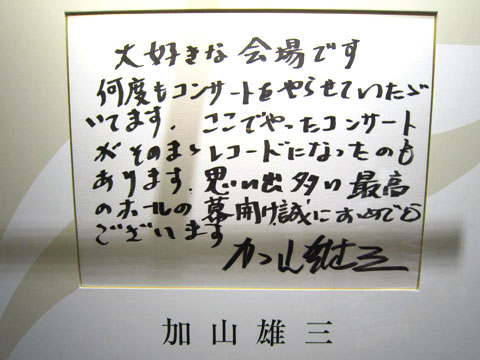 大好きな会場です
何度もコンサートをやらせていただ
いてます、ここでやったコンサート
がそのまゝレコードになったのも
あります、思い出多い最高
のホールの幕開け誠におめでとう
ございます
加山雄三
加山雄三